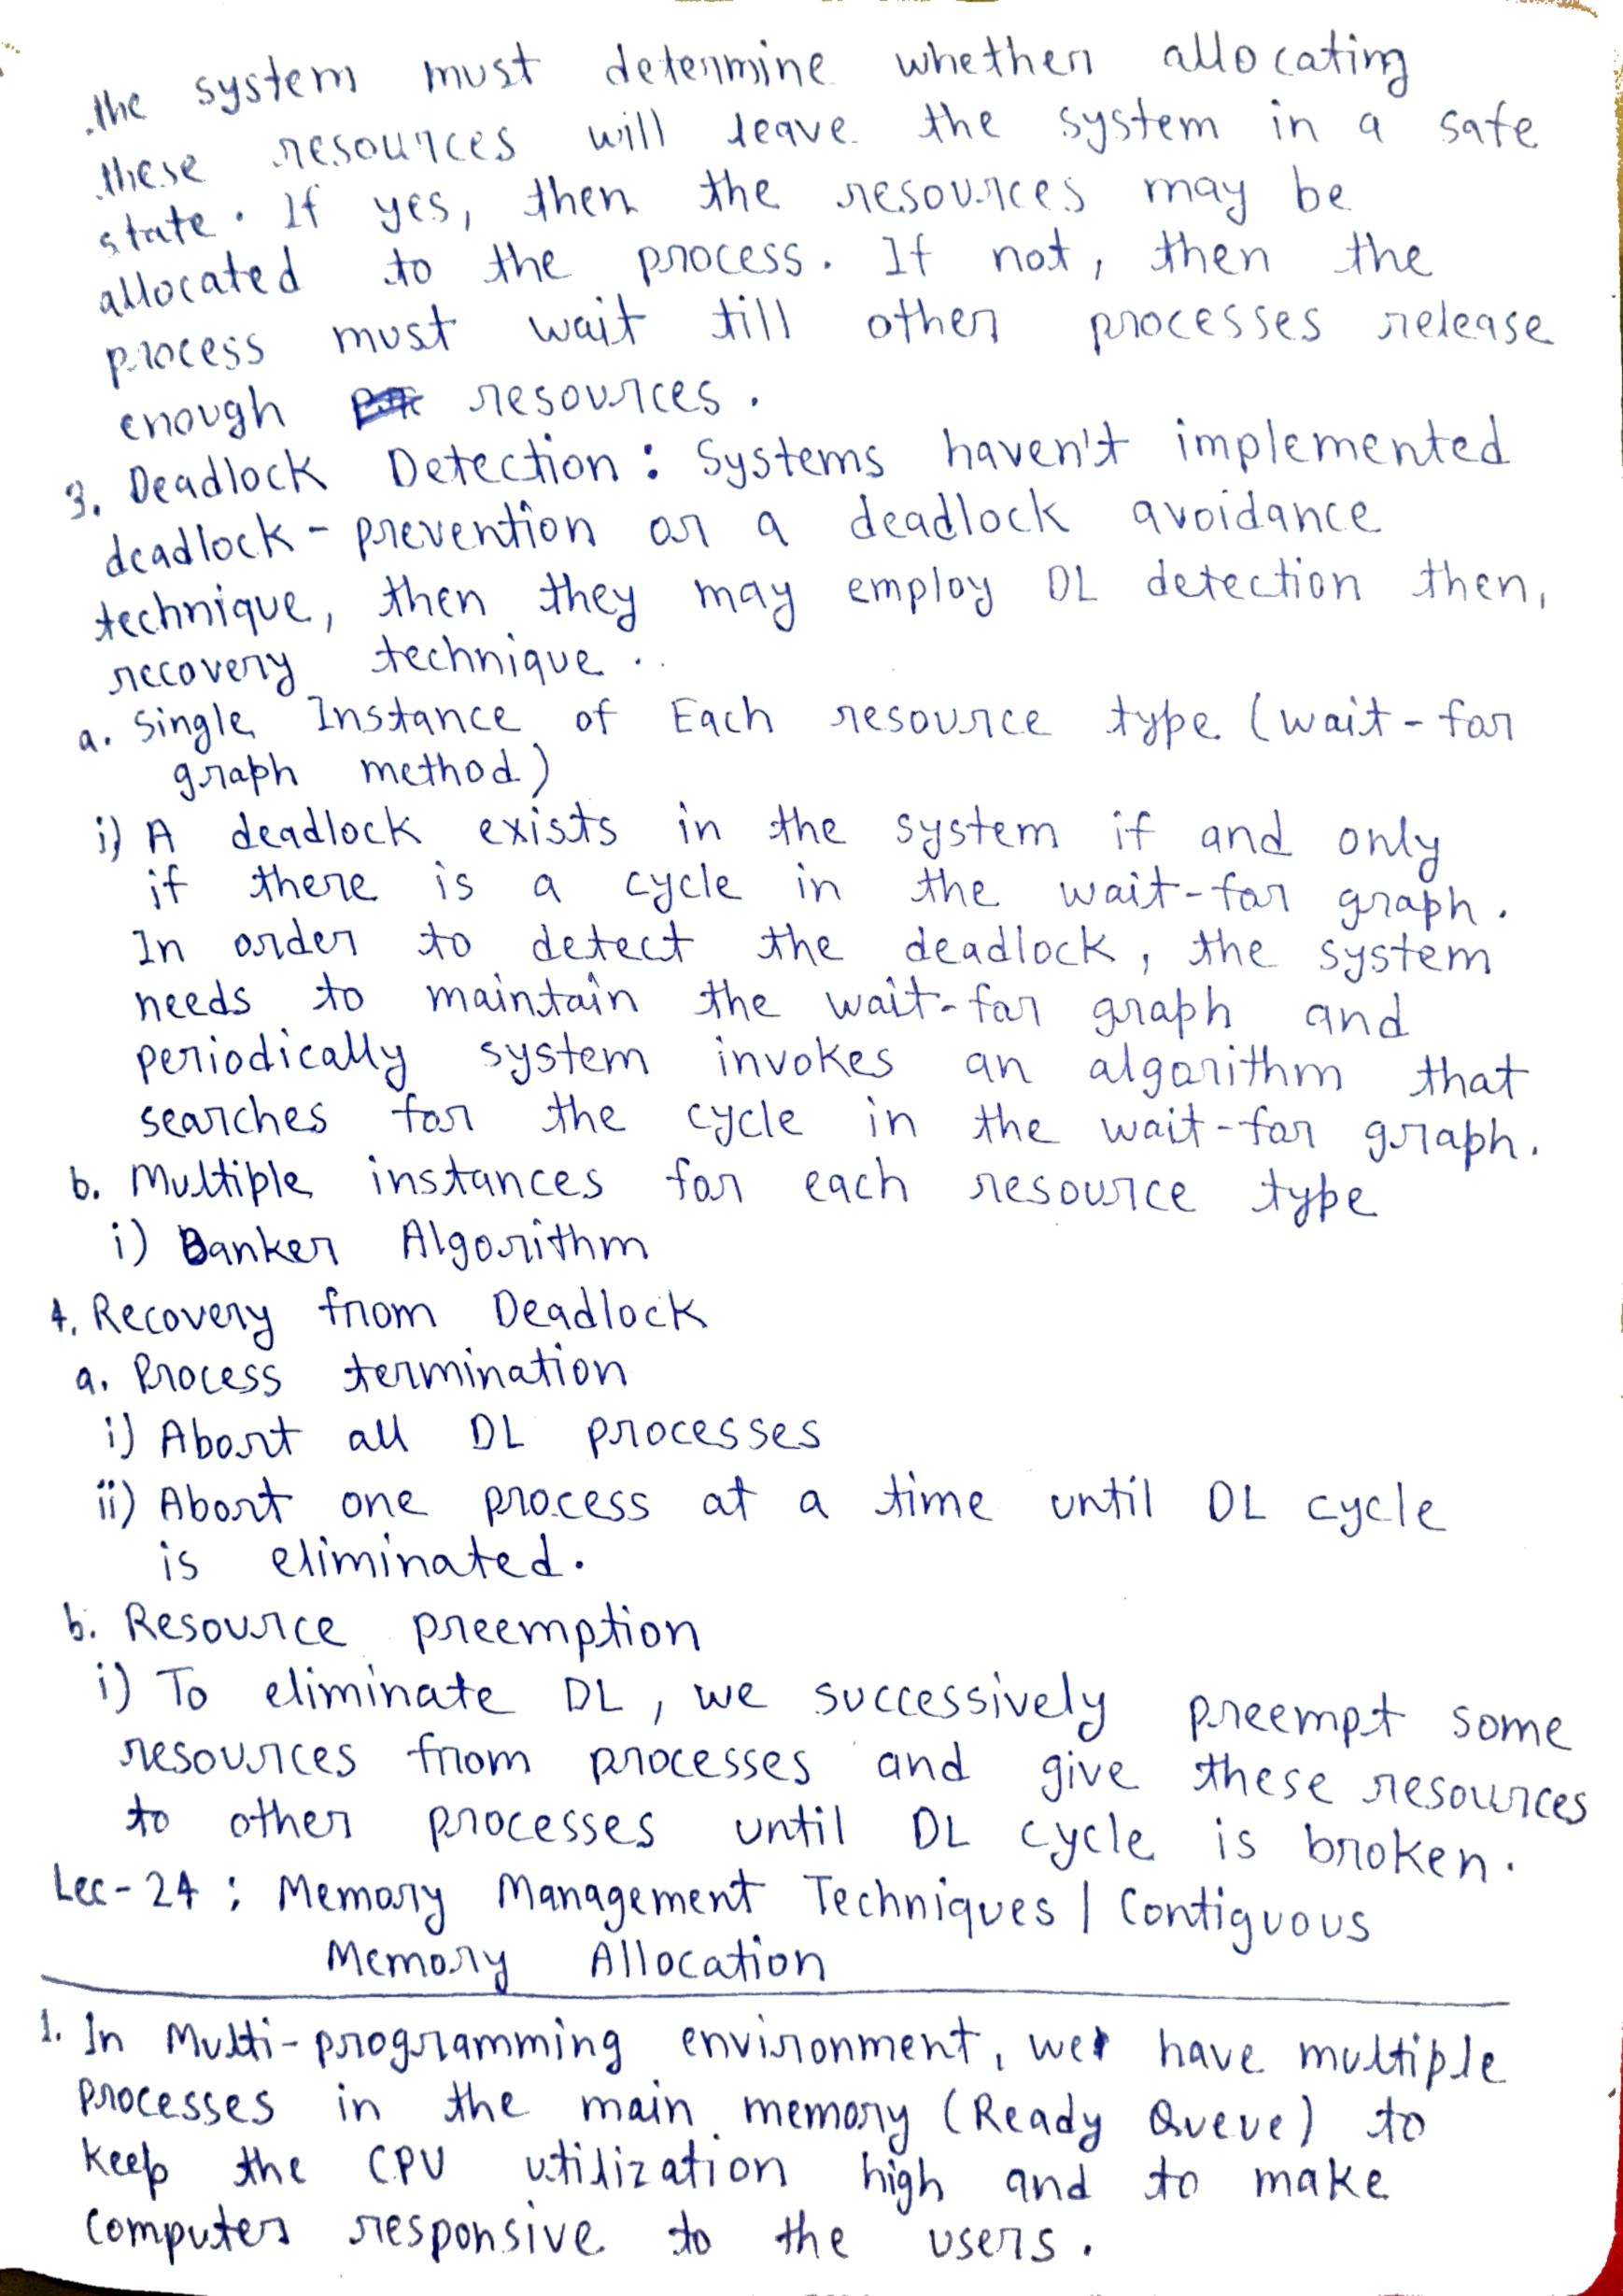 the system must determine whether allocating
these resources will leave the system in a safe
state. If yes, then the resources may be
allocated to the process. If not, then the
process must wait till other processes release
enough resources.
3. Deadlock Detection: Systems haven't implemented
deadlock-prevention or a deadlock avoidance
technique, then they may employ DL detection then,
recovery technique..
a. Single Instance of Each resource type (wait-for
graph method)
i) A deadlock exists in the system if and only
if there is a cycle in the wait-for graph.
In order to detect the deadlock, the system
needs to maintain the wait-for graph and
periodically system invokes an algorithm that
searches for the cycle in the wait-for graph.
b. Multiple instances for each resource type
i) Banker Algorithm
4. Recovery from Deadlock
a. Process termination
i) Abort all DL processes
ii) Abort one process at a time until DL cycle
is eliminated.
b. Resource preemption
i) To eliminate DL, we successively preempt some
resources from processes and give these resources
to other processes until DL cycle is broken.
Lec-24: Memory Management Techniques | Contiguous
Memory Allocation
1. In Multi-programming environment, we have multiple
processes in the main memory (Ready Queue) to
keep the CPU utilization high and to make
computer responsive to the users.